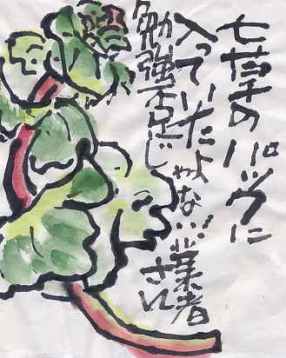 七草のパックに
入っていたよ
勉強不足じ
ゃない!!業者
さん